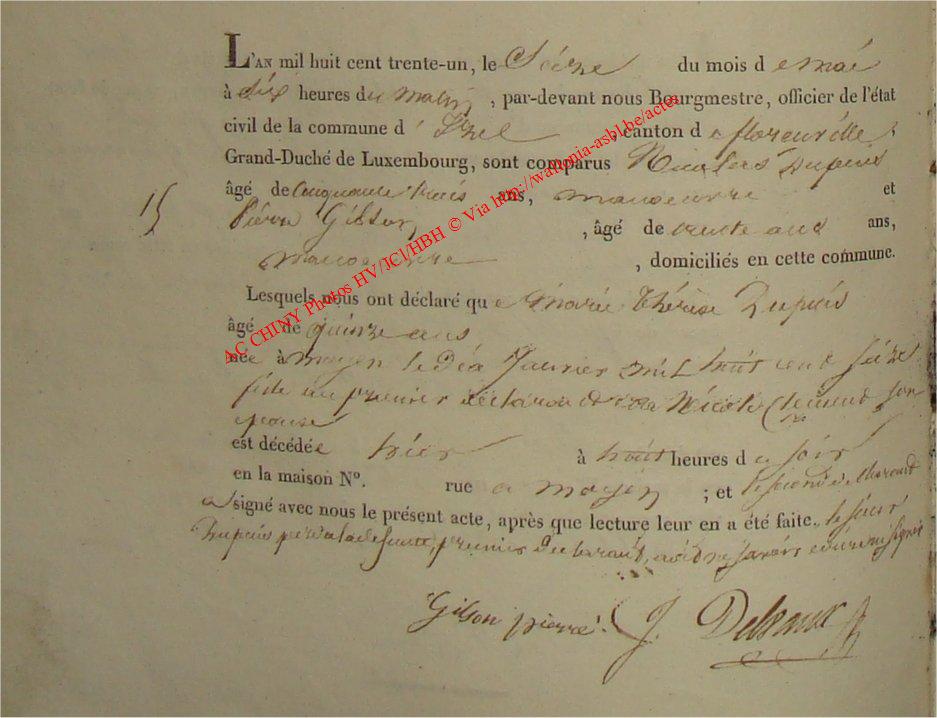 L'AN mil huit cent trente-un, le Seize du mois d e mai
à dix heures du matin, par-devant nous Bourgmestre, officier de l'état
civil de la commune d' Izel, canton d e florenville,
Grand-Duché de Luxembourg, sont comparus Nicolas Dupuis
âgé de Cinquante trois ans, manoeuvre et
15
Pierre Gilson, âgé de trente ans ans,
manoeuvre, domiciliés en cette commune.
Lesquels nous ont déclaré qu e Marie Thérèse Dupuis
âgé de quinze ans
née à moyen le dix Janvier mil huit cent seize
fille du premier déclarant et de Nicole Clement son
epouse
est décédée hier à huit heures d u soir
en la maison N°. rue a moyen ; et le second déclarant
a signé avec nous le présent acte, après que lecture leur en a été faite. le sieur
Dupuis père de la defunte, premier declarant, a dit ne savoir ecrire ni signer
Gilson pierre. J.
AC CHINY Photos HV/JCl/HBH © Via http://wallonia-asbl.be/actes